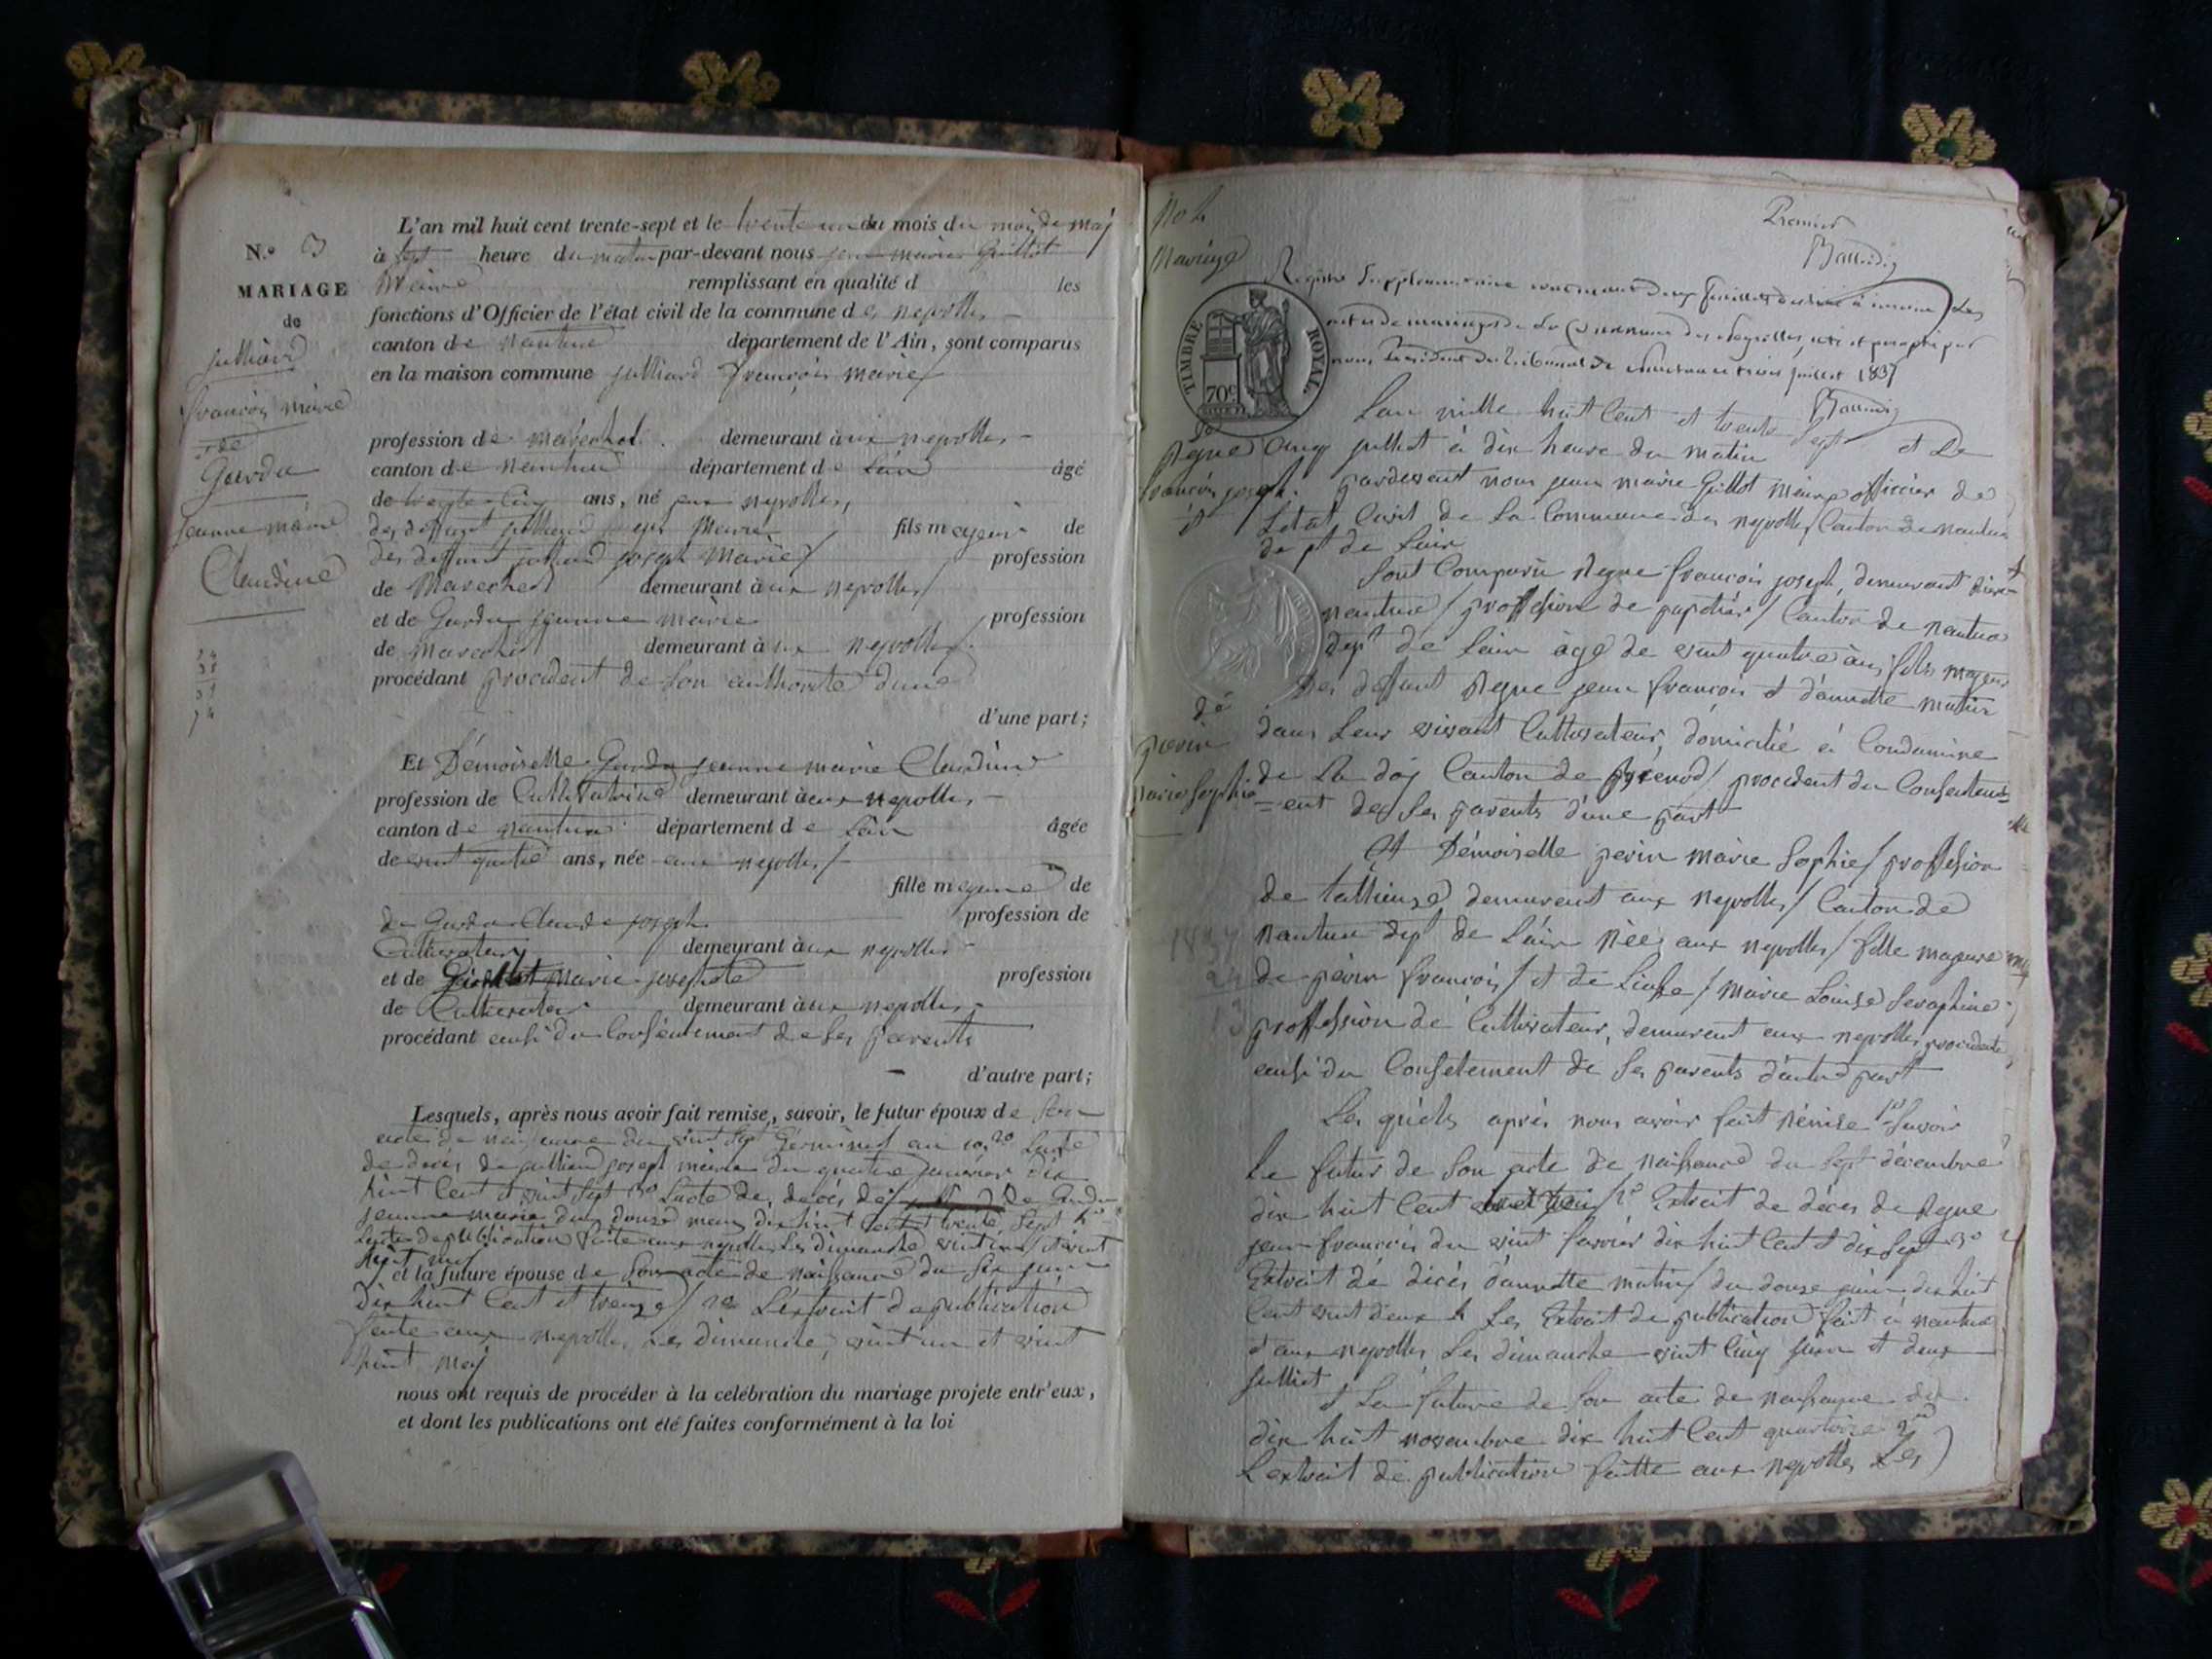 N.° 3
MARIAGE
de
julliard
françois marie
et de
Gardu
jeanne marie
Claudine
L'an mil huit cent trente-sept et le trente un du mois du mois de maj
à sept heure du matin par-devant nous jean marie Guillot
Maire remplissant en qualité d les
fonctions d'Officier de l'état civil de la commune des neyrolles
canton de nantua département de l'Ain, sont comparus
en la maison commune julliard françois marie
profession de marechal demeurant aux neyrolles
canton de nantua département de Lain âgé
de trente-cinq ans, né aux neyrolles
fils majeur de
des deffunt julliard joseph Marie profession
de Marechal demeurant aux neyrolles
et de Gardu jeanne marie profession
de Marechal demeurant à neyrolles
procédant procedent de son authorité d'une
d'une part;
Et Démoiselle Gardu jeanne marie Claudine
profession de Cultivatrice demeurant à aux neyrolles
canton de nantua département de Lain âgée
de vint quatre ans, née aux neyrolles
fille majeure de
de Gardu Claude joseph profession de
Cultivateur demeurant à aux neyrolles
et de marie josephte profession
de Cultivateur demeurant à aux neyrolles
procédant ausi du Consentement de ses parents
d'autre part;
Lesquels, après nous avoir fait remise, savoir, le futur époux de son
acte de naissance du vint sept Germinal an 10, 2° Lacte
de décès de julliard joseph marie du quatre janvier dix
huit Cent et vint sept 3° Lacte de decès de Gardu
jeanne marie du douse mars dix huit Cent et trente sept
de publication faite aux neyrolles Les dimanche vint un et vint
huit maj
et la future épouse de son acte de naissance du six juin
dix huit Cent et treize 2e Lextrait de publication
faite aux neyrolles Les dimanche vint un et vint
huit maj
nous ont requis de procéder à la celébration du mariage projete entr'eux,
et dont les publications ont été faites conformément à la loi
Mariage
françois joseph
et
de
perin
marie Sophie
Premier
Registre Supplémentaire contenant deux feuillets destiné à inscrire Les
actes de mariages de La Commune des Neyrolles, coté et paraphé par
nous Président du Tribunal de Nantua ce trois juillet 1837
TIMBRE ROYAL
70c
Lan mille huit Cent et trente Sept et Le
Cinq julliet à dix heure du matin
pardevant nous jean marie Guillot maire officier de
Létat Civil de La Commune des neyrolles Canton de nantua
dept de Lain
Sont Comparu françois joseph, demeurant à
nantua / proffession de papetier / Canton de nantua
dept de Lain âgé de vint quatre ans, fils majeur
des deffunt jean françois et d'annette matin
dans Leur vivant Cultivateur, domicilié à Condamine
de La doj Canton de Brenod / procedent du Consentem=
=ent de ses parents d'une part
Et Démoiselle perin marie Sophie / proffession
de tallieuse demeurent aux neyrolles / Canton de
nantua dept de Lain née aux neyrolles / fille majeure
de perin françois / et de / marie Louise Seraphine
proffession de Cultivateur, demeurent aux neyrolles procedente
ausi du Consetement de ses parents d'autre part
Les quels après nous avoir fait rémise 1° Savoir
Le futur de son acte de naissance du sept décembre
dix huit Cent 2° Extrait de décès de
jean françois du vint favrier dix huit Cent et dix sept 3°
Extrait de décès d'annette matin / du douse juin dix huit
Cent vint deux 4 Les Extrait de publication fait à nantua
et aux neyrolles Les dimanche vint Cinq juin et deux
julliet
et La future de son acte de naissance du
dix huit novembre dix huit Cent quatorze 2e
Lextrait de publication faitte aux neyrolles Les